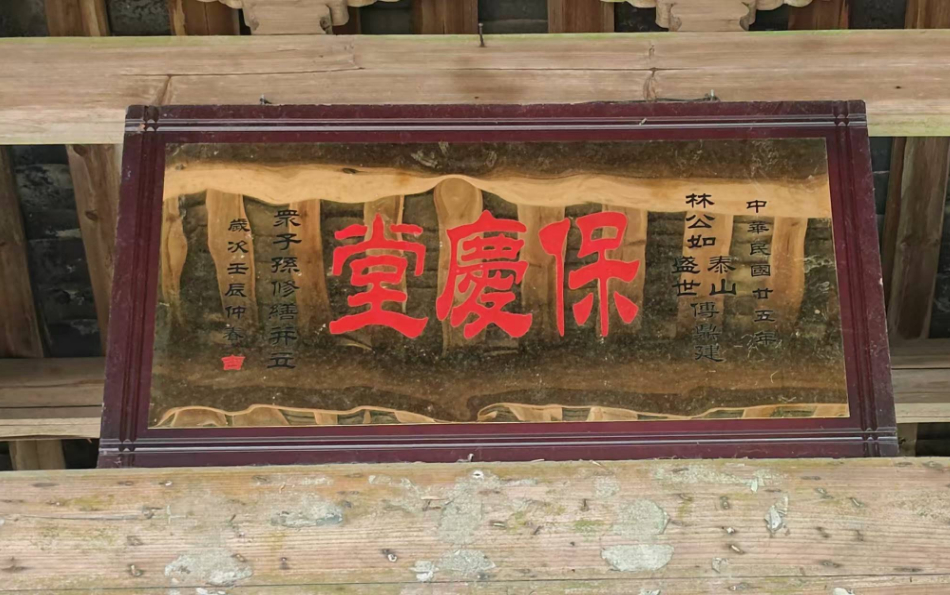 中華民國廿五年
林公如泰山盛世傳鼎建
保慶堂
衆子孫修繕并立
歲次壬辰仲春